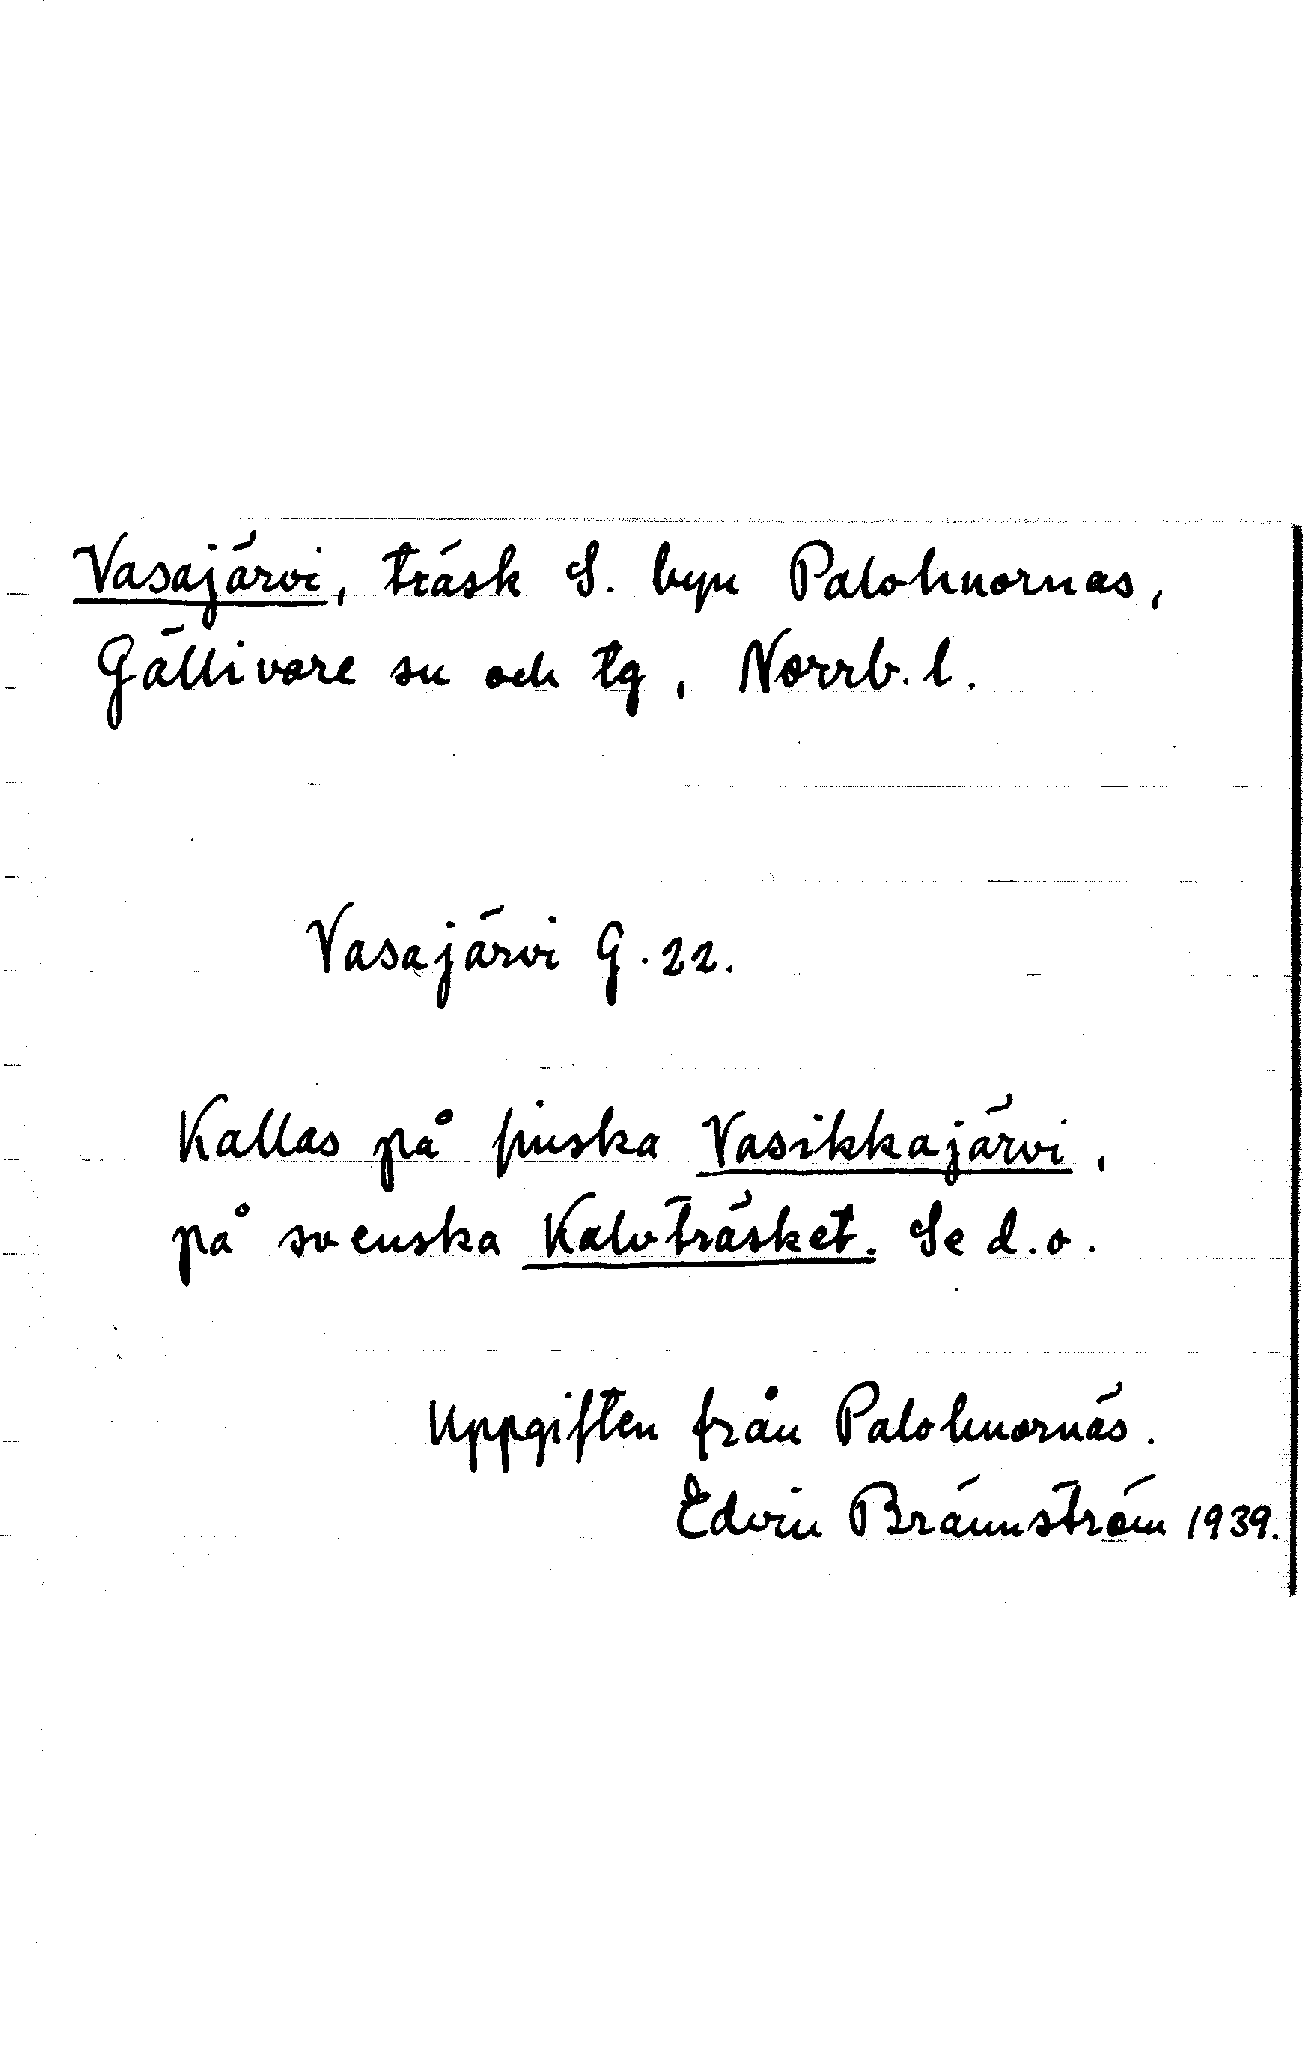 Vasajärvi, träsk S. byn Palohuornas,
Gällivare sn och tg, Norrb. l.
Vasajärvi G. 22.
Kallas på finska Vasikkajärvi,
på svenska Kalvträsket. Se d. o.
Uppgiften från Palohuornäs.
Edvin Brännström 1939.